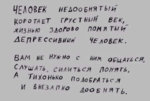 ЧЕЛОВЕК НЕДООБНЯТЫЙ
КОРОТАЕТ ГРУСТНЫЙ ВЕК,
ЖИЗНЬЮ ЗДОРОВО ПОМЯТЫЙ
ДЕПРЕССИВНЫЙ ЧЕЛОВЕК.
ВАМ НЕ НУЖНО С НИМ ОБЩАТЬСЯ,
СЛУШАТЬ, СИЛИТЬСЯ ПОНЯТЬ,
А ТИХОНЬКО ПОДОБРАТЬСЯ
И ВНЕЗАПНО ДООБНЯТЬ.